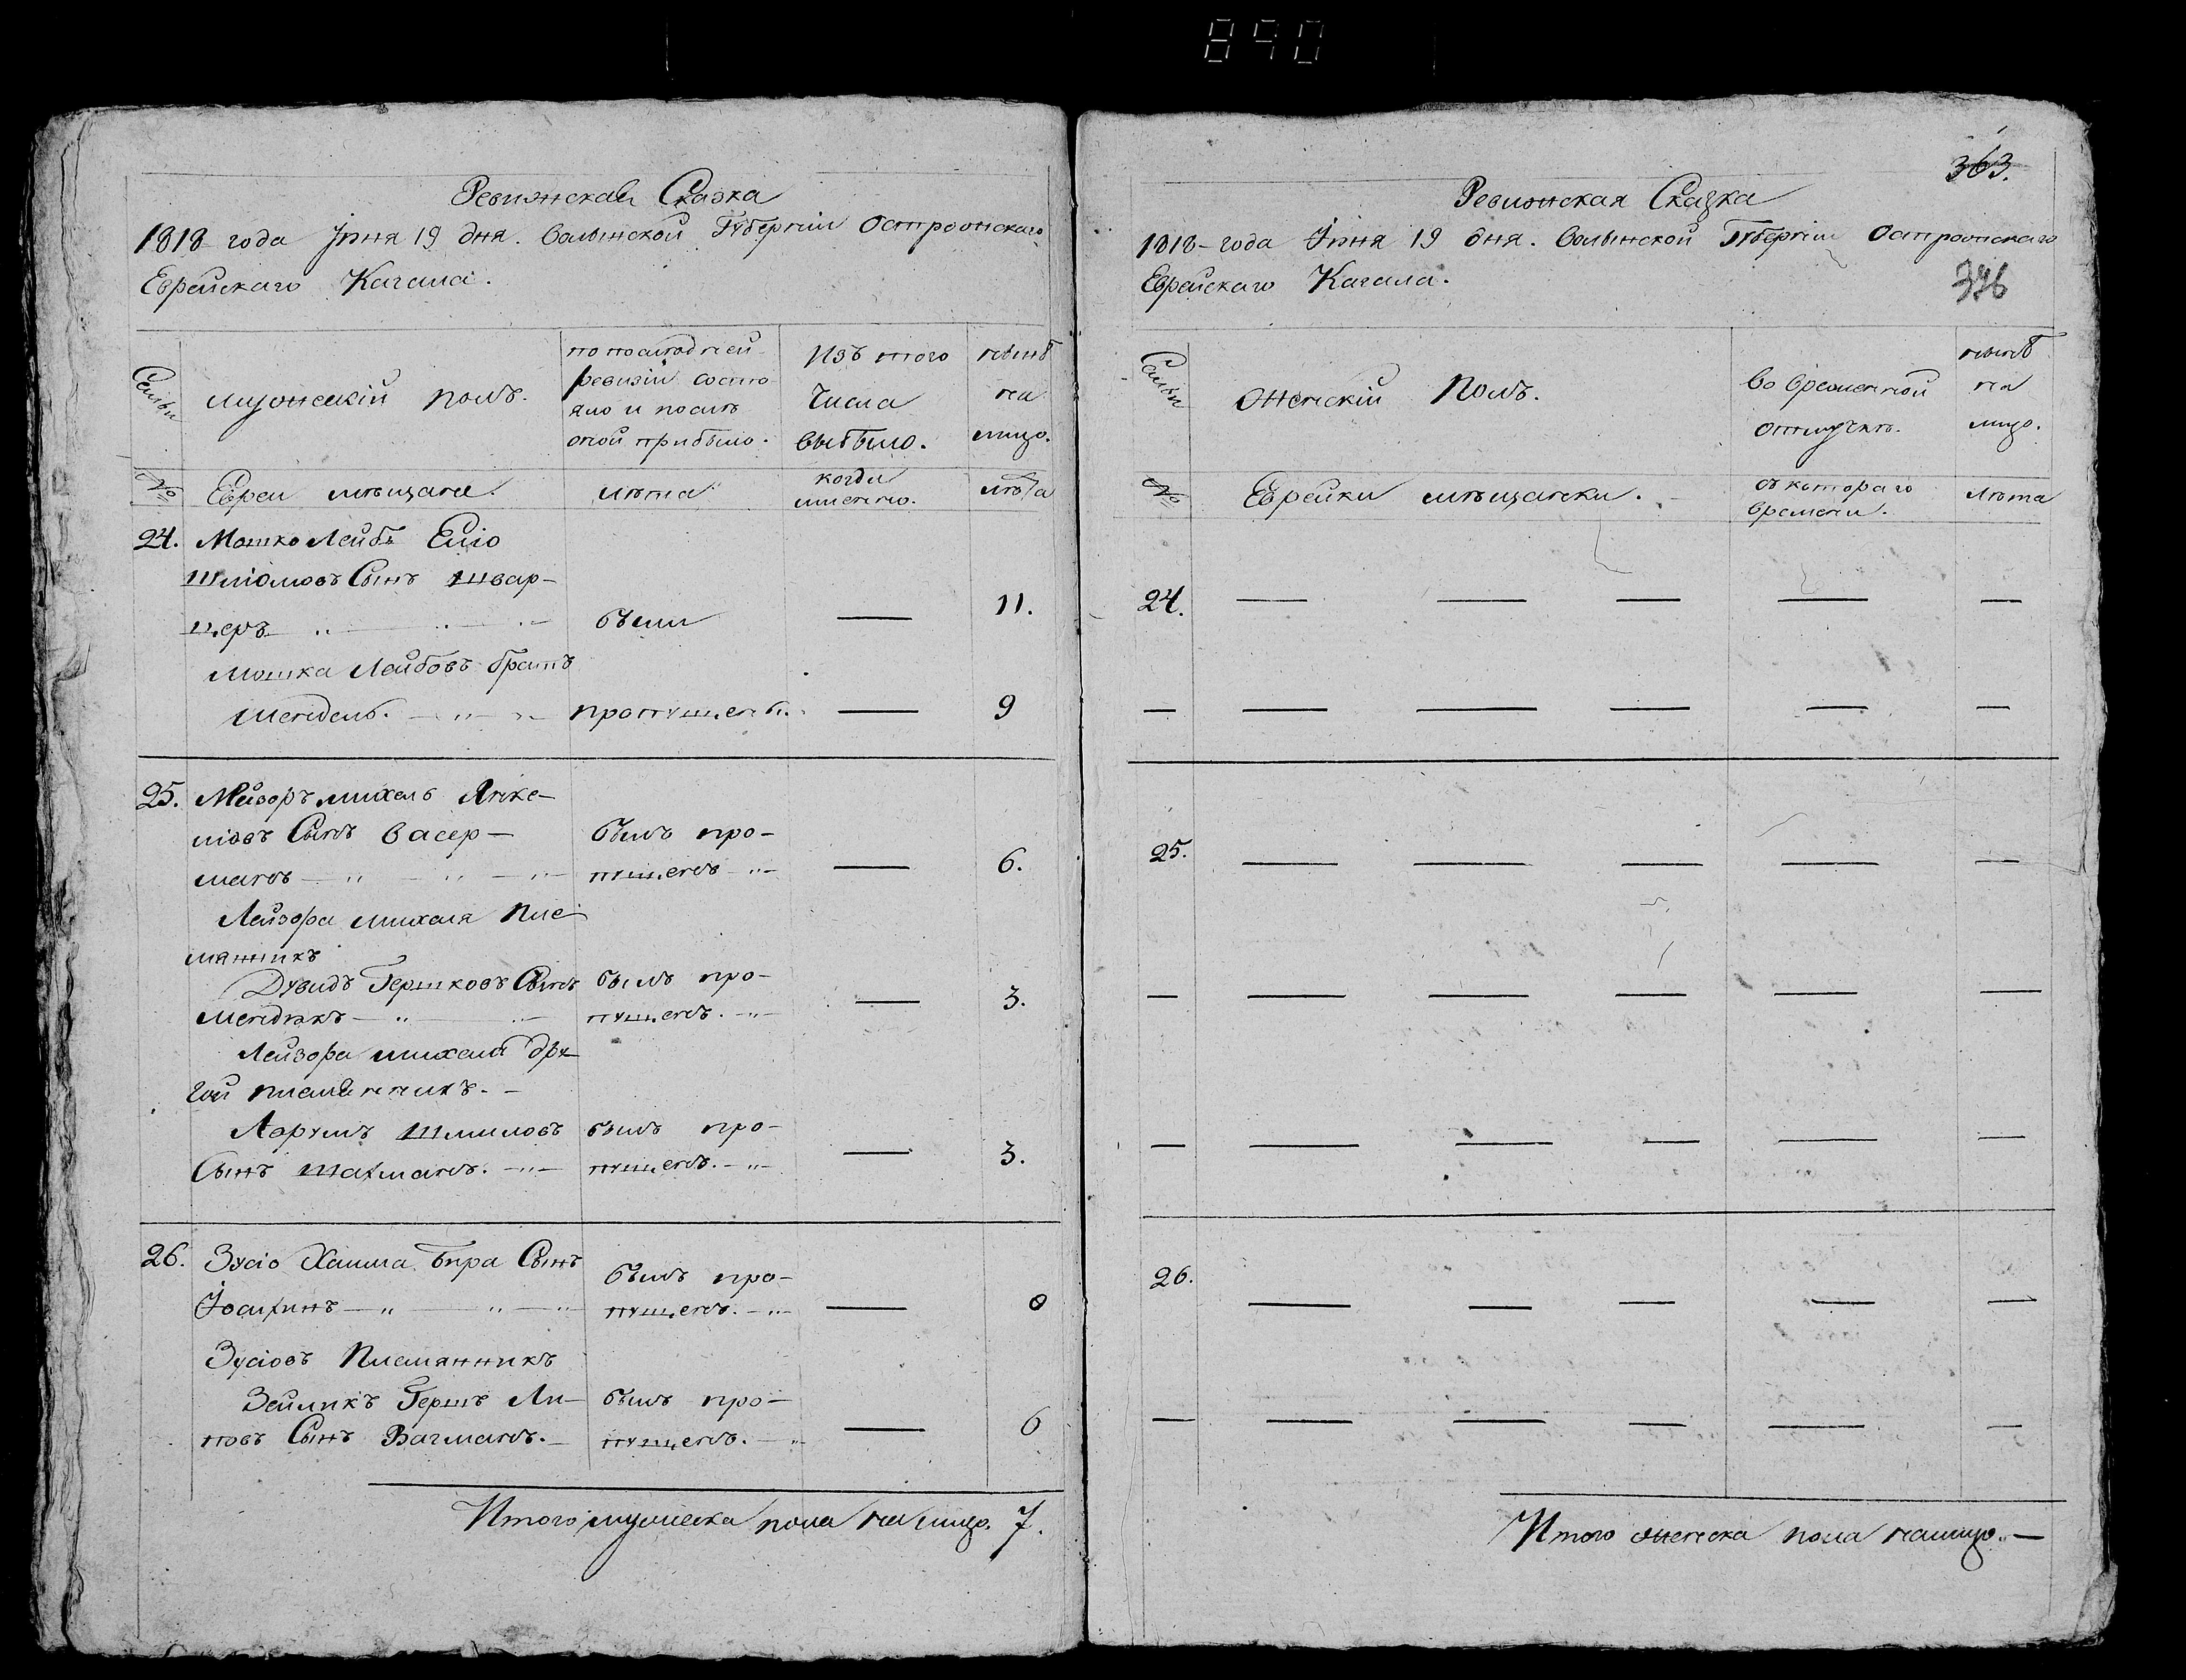 890
Ревижская Сказка
1818 года Iюня 19 дня. Волынской Губернiи Острожскаго
Еврейскаго Кагала.
Семьи
мужескiй полъ.
по последней
ревизiи состо
яло и послѣ
оной прибыло.
Изъ того
числа
выбыло.
нынѣ
на
лицо.
№
Евреи мѣщане.
лѣта
когда
именно.
лѣта
24. Мошко Лейбъ Елiо
Шлiомовъ Сынъ Швар-
церъ были — 11.
Мошка Лейбовъ братъ
Мендель. пропущены. — 9
25. Лейзоръ михель Янке-
лiовъ Сынъ Васер- былъ про-
манъ пущенъ — 6.
Лейзора михеля Пле-
мянникъ
Дувидъ Гершковъ Сынъ былъ про-
Мендзакъ пущенъ. — 3.
Лейзора михеля дру-
гой племянникъ. -
Аврумъ Шмиловъ былъ про-
Сынъ Шахманъ. пущенъ. — 3.
26. Зусiо Хаима Бира Сынъ былъ про-
пущенъ. — 8
Зусiовъ Племянникъ
Зейликъ Гершъ Ли- былъ про-
повъ Сынъ Вагманъ. пущенъ. — 6
Итого мужеска пола на лицо. 7.
363.
Ревижская Сказка
1818- года Iюня 19 дня. Волынской Губернiи Острожскаго
Еврейскаго Кагала.
396
Семьи
женскiй Полъ.
во временной
отлучкѣ.
нынѣ
на
лицо.
№
Еврейки мѣщанки.
съ котораго
времени.
лѣта
24. — — — — —
— — — — — —
25. — — — — —
— — — — — —
— — — — — —
26. — — — — —
— — — — — —
Итого женска пола налицо. —